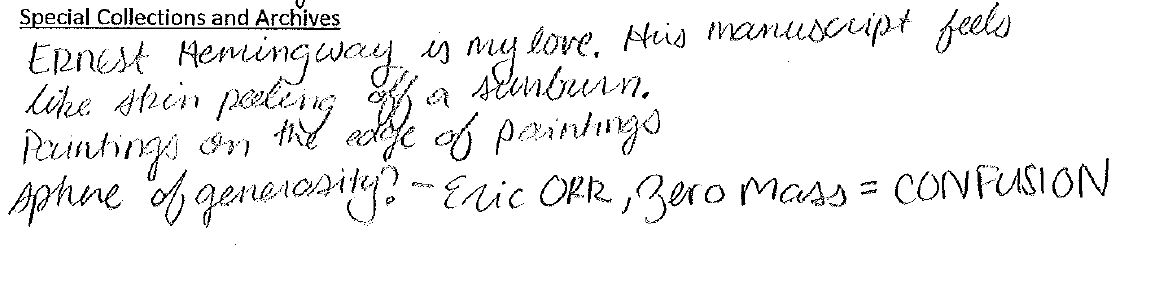 Special Collections and Archives
Ernest Hemingway is my love. His manuscript feels
like skin peeling off a sunburn.
Paintings on the edge of paintings
sphere of generosity? - Eric ORR, Zero Mass = CONFUSION